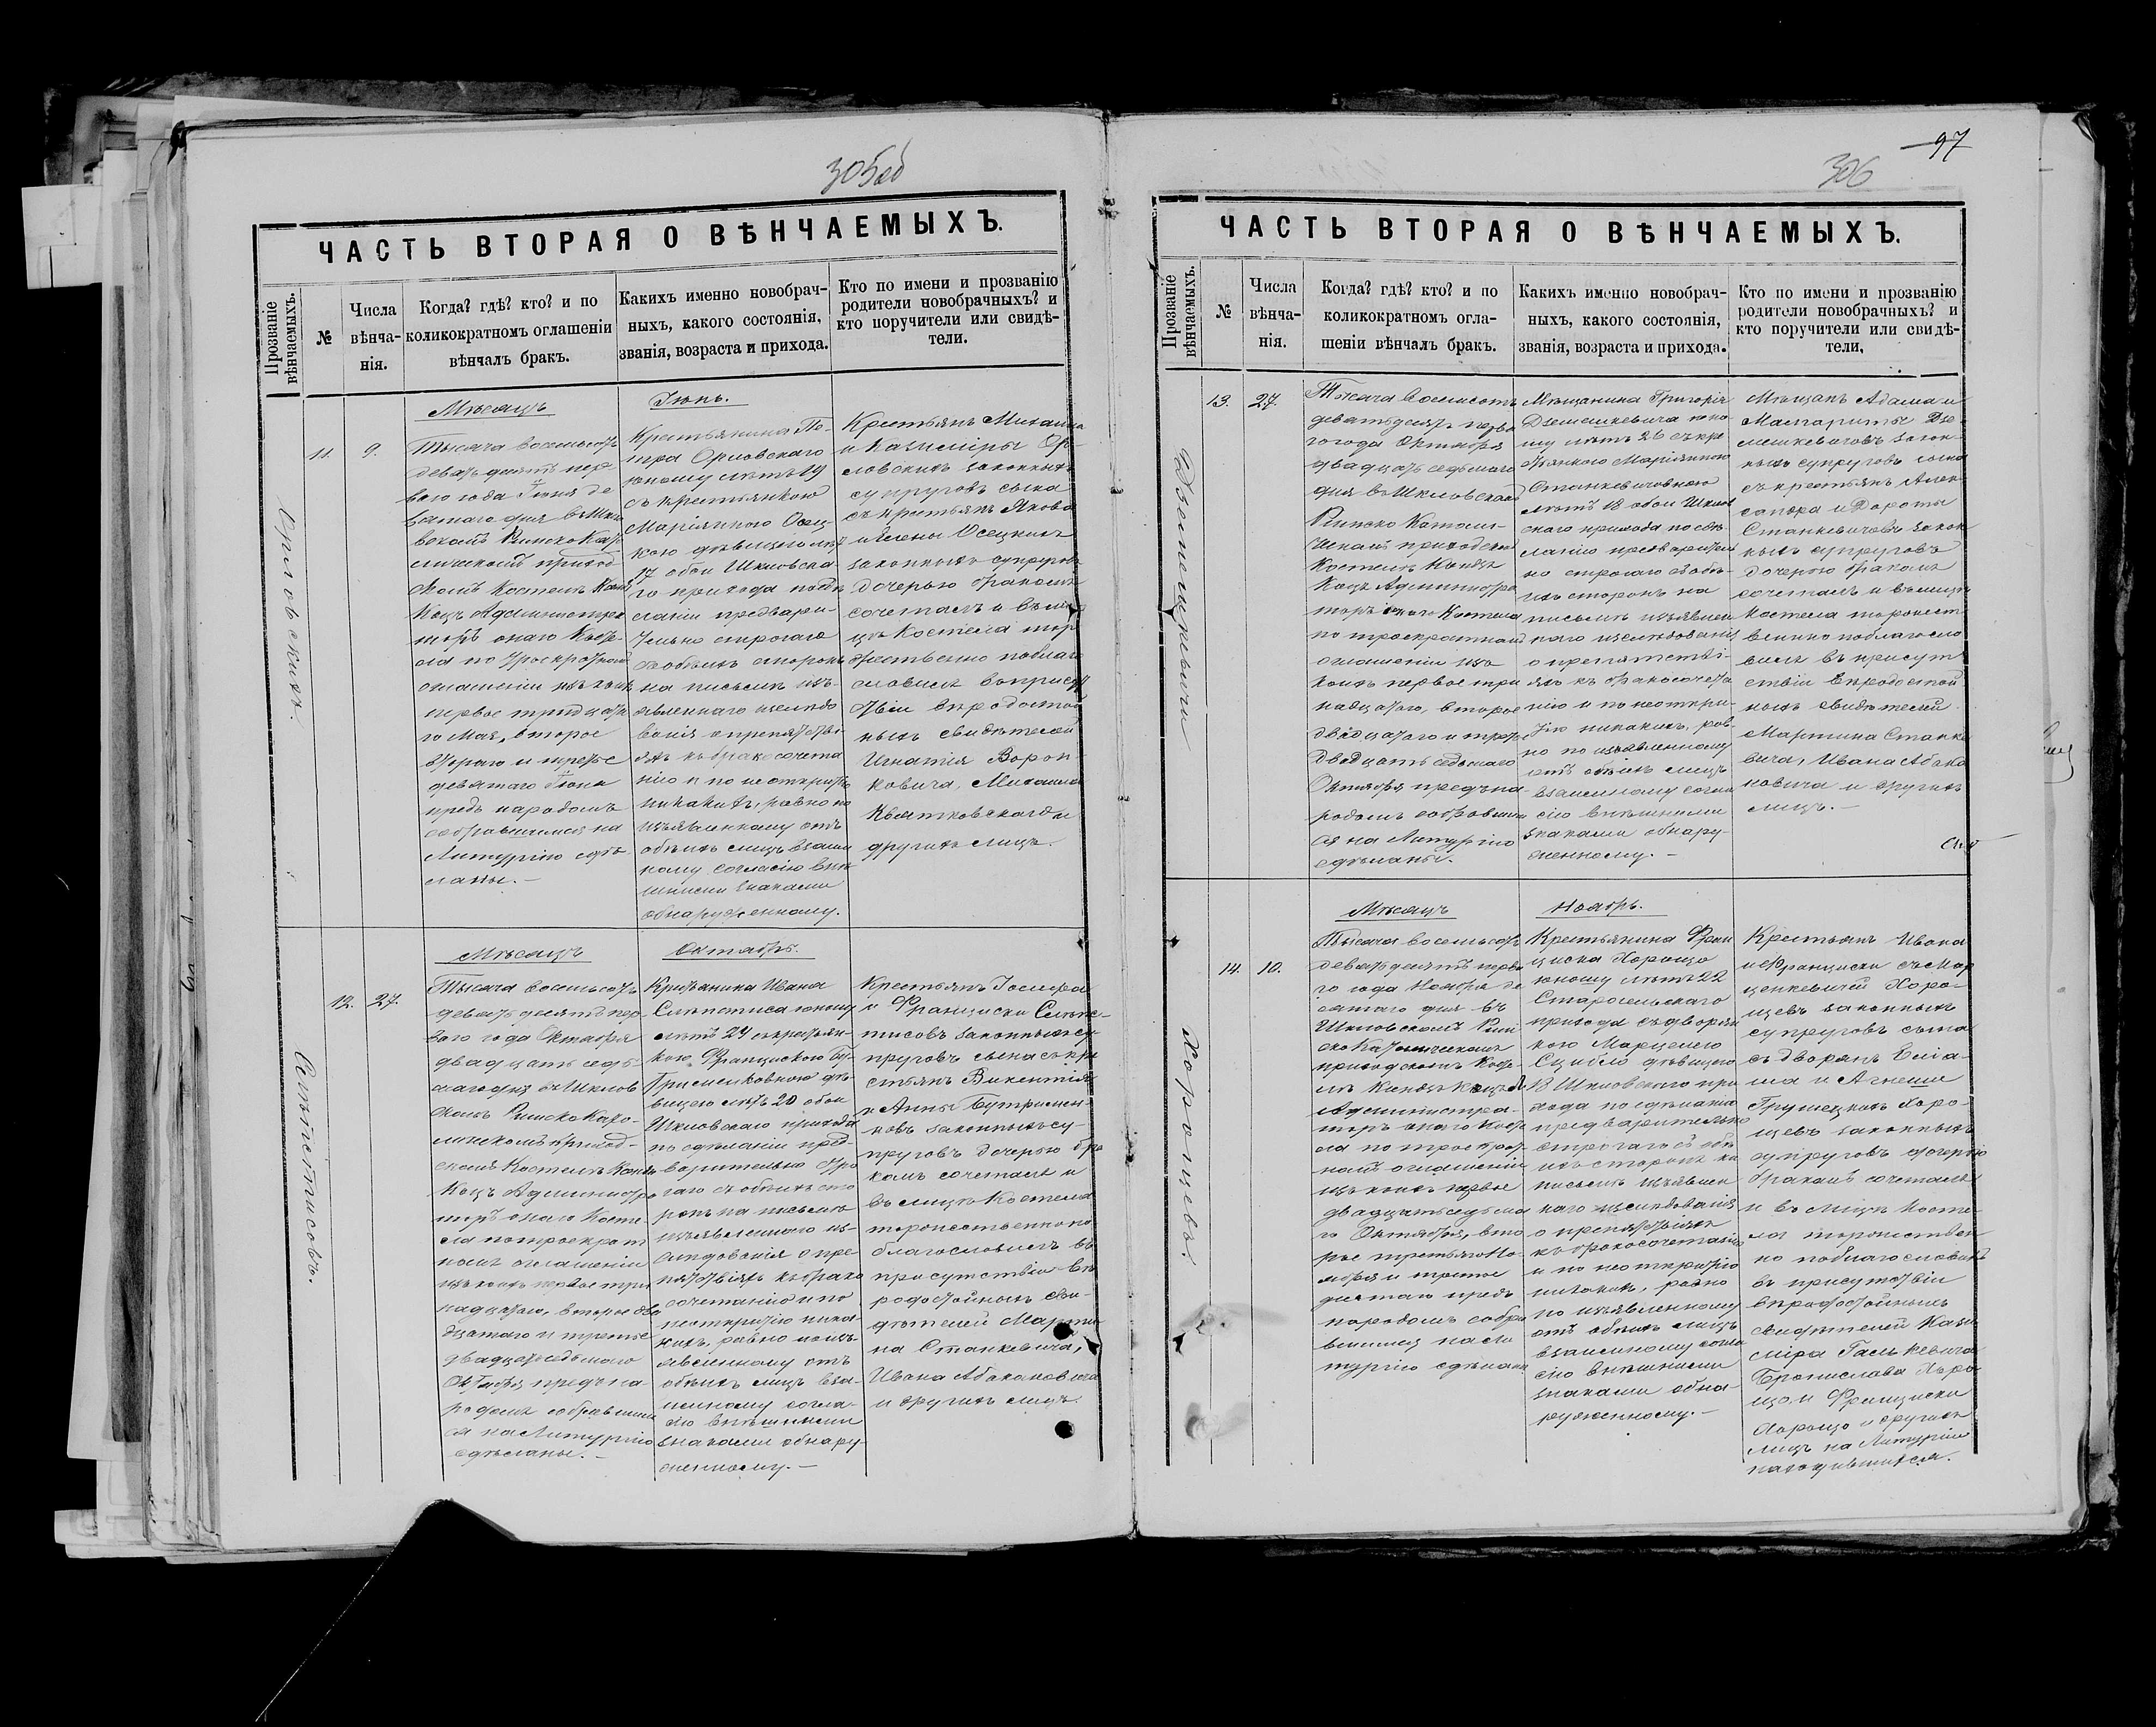 305об
ЧАСТЬ ВТОРАЯ О ВѢНЧАЕМЫХЪ.
Прозваніе
вѣнчаемыхъ.
№
Числа
вѣнча-
нія.
Когда? гдѣ? кто? и по
коликократномъ оглашеніи
вѣнчалъ бракъ.
Какихъ именно новобрач-
ныхъ, какого состоянія,
званія, возраста и прихода.
Кто по имени и прозванію
родители новобрачныхъ? и
кто поручители или свидѣ-
тели.
Орловскихъ.
11.
9.
Мѣсяцъ
Тысяча восемьсотъ
девятьдесятъ пер
ваго года Іюня де
вятаго дня въ Шкло
вскомъ Римско Като
лическомъ приход
скомъ Костелѣ Ксендзъ
Коцъ Администра
торъ онаго Косте-
ла по троекратномъ
оглашеніи изъ коихъ
первое тридцата
го Мая, второе
втораго и третье
девятаго Іюня
предъ народомъ
собравшимся на
Литургію сдѣ
ланы.—
Іюнь.
Крестьянина Пе-
тра Орловскаго
юношу лѣтъ 19
съ крестьянкою
Маріянною Осец
кою дѣвицею лѣтъ
17 обои Шкловска
го прихода по сдѣ
ланіи предвари-
тельно строгаго
съ обѣихъ сторонъ
на письмѣ изъ-
явленнаго изслѣдо
ванія о препятстві
яхъ къ бракосочета
нію и по неоткрытію
никакихъ, равно по
изъявленному отъ
обѣихъ лицъ взаим
ному согласію внѣ
шними знаками
обнаруженному.
Крестьянъ Михаила
и Казиміры Ор-
ловскихъ законныхъ
супруговъ сына
съ крестьянъ Якова
и Елены Осецкихъ
законныхъ супруговъ
дочерью бракомъ
сочеталъ и въ ли
цѣ Костела тор
жественно поблаго
словилъ въ присут
ствіи вѣродостой
ныхъ свидѣтелей
Игнатія Ворон-
ковича, Михаила
Квятковскаго и
другихъ лицъ.
12.
27.
Мѣсяцъ
Тысяча восемьсотъ
девятьдесятъ пер
ваго года Октября
двадцать седь-
маго дня въ Шклов
скомъ Римско Като-
лическомъ приход-
скомъ Костелѣ Ксендзъ
Коцъ Администра
торъ онаго Косте
ла по троекрат
номъ оглашеніи
изъ коихъ первое три
надцатаго, второе два
дцатаго и третье
двадцать седьмаго
Октября предъ на
родомъ собравшим
ся на Литургію
сдѣланы.—
Октябрь.
Крестьянина Ивана
юношу
лѣтъ 24 съ крестьян-
кою Францишкою Бу-
тримёнковною дѣ-
вицею лѣтъ 20 обои
Шкловскаго прихода
по сдѣланіи пред-
варительно стро
гаго съ обѣихъ сто
ронъ на письмѣ
изъявленнаго из-
слѣдованія о пре
пятствіяхъ къ брако
сочетанію и по
неоткрытію ника-
кихъ, равно по изъ-
явленному отъ
обѣихъ лицъ вза-
имному согла-
сію внѣшними
знаками обнару-
женному.—
Крестьянъ Іосифа
и Франциски
законныхъ су-
пруговъ сына съ кре
стьянъ Викентія
и Анны Бутримен-
ковъ законныхъ су-
пруговъ дочерью бра
комъ сочеталъ и
въ лицѣ Костела
торжественно по
благословилъ въ
присутствіи вѣ
родостойныхъ сви-
дѣтелей Марти
на Станкевича,
Ивана Абакановича
и другихъ лицъ.
97
306
ЧАСТЬ ВТОРАЯ О ВѢНЧАЕМЫХЪ.
Прозваніе
вѣнчаемыхъ.
№
Числа
вѣнча-
нія.
Когда? гдѣ? кто? и по
коликократномъ огла-
шеніи вѣнчалъ бракъ.
Какихъ именно новобрач-
ныхъ, какого состоянія,
званія, возраста и прихода.
Кто по имени и прозванію
родители новобрачныхъ? и
кто поручители или свидѣ-
тели.
13.
27.
Тысяча восемьсотъ
девятьдесятъ перва
го года Октября
двадцать седьмаго
дня въ Шкловскомъ
Римско Католи-
ческомъ приходскомъ
Костелѣ Ксендзъ
Коцъ Администра
торъ онаго Костела
по троекратномъ
оглашеніи изъ
коихъ первое три
надцатаго, второе
двадцатаго и третье
двадцать седьмаго
Октября предъ на-
родомъ собравшим
ся на Литургію
сдѣланы.
Мѣщанина Григорія
Дземешкевича юно
шу лѣтъ 26 съ кре
стьянкою Маріянною
Станкевичовною
лѣтъ 18 обои Шклов
скаго прихода по сдѣ-
ланіи предваритель
но строгаго съ обѣ-
ихъ сторонъ на
письмѣ изъявлен
наго изслѣдованія
о препятстві-
яхъ къ бракосочета
нію и по неоткры-
тію никакихъ, рав-
но по изъявленному
отъ обѣихъ лицъ
взаимному согла
сію внѣшними
знаками обнару-
женному.—
Мѣщанъ Адама и
Маргариты Дзе-
мешкевичовъ закон-
ныхъ супруговъ сына
съ крестьянъ Алек
сандра и Дороты
Станкевичовъ закон
ныхъ супруговъ
дочерью бракомъ
сочеталъ и въ лицѣ
Костела торжест-
венно поблагосло
вилъ въ присут
ствіи вѣродостой
ныхъ свидѣтелей
Мартина Станке
вича, Ивана Абака
новича и другихъ
лицъ.—
Хорощевъ.
14.
10.
Мѣсяцъ
Тысяча восемьсотъ
девятьдесятъ перва
го года Ноября де
сятаго дня въ
Шкловскомъ Рим
ско Католическомъ
приходскомъ Косте
лѣ Ксендзъ Коцъ
Администра-
торъ онаго Косте
ла по троекрат
номъ оглашеніи
изъ коихъ первое
двадцать седьма
го Октября, вто
рое третьяго Но-
ября и третье
десятаго предъ
народомъ собра
вшимся на Ли
тургію сдѣланы
Ноябрь.
Крестьянина Фран
циска Хорощо
юношу лѣтъ 22
Старосельскаго
прихода съ дворян
кою Марцелею
дѣвицею
18 Шкловскаго при
хода по сдѣланіи
предварительно
строгаго съ обѣ
ихъ сторонъ на
письмѣ изъявлен
наго изслѣдованія
о препятствіяхъ
къ бракосочетанію
и по неоткрытію
никакихъ, равно
по изъявленному
отъ обѣихъ лицъ
взаимному согла
сію внѣшними
знаками обна-
руженному.—
Крестьянъ Ивана
и Франциски съ Мар
ценкевичей Хоро-
щевъ законныхъ
супруговъ сына
съ дворянъ
и Агнеши
законныхъ
супруговъ дочерью
бракомъ сочеталъ
и въ лицѣ Косте-
ла торжествен
но поблагословилъ
въ присутствіи
вѣродостойныхъ
свидѣтелей Кази
міра
Бронислава Хоро
що и Франциски
Хорощо и другихъ
лицъ на Литургіи
находившихся.